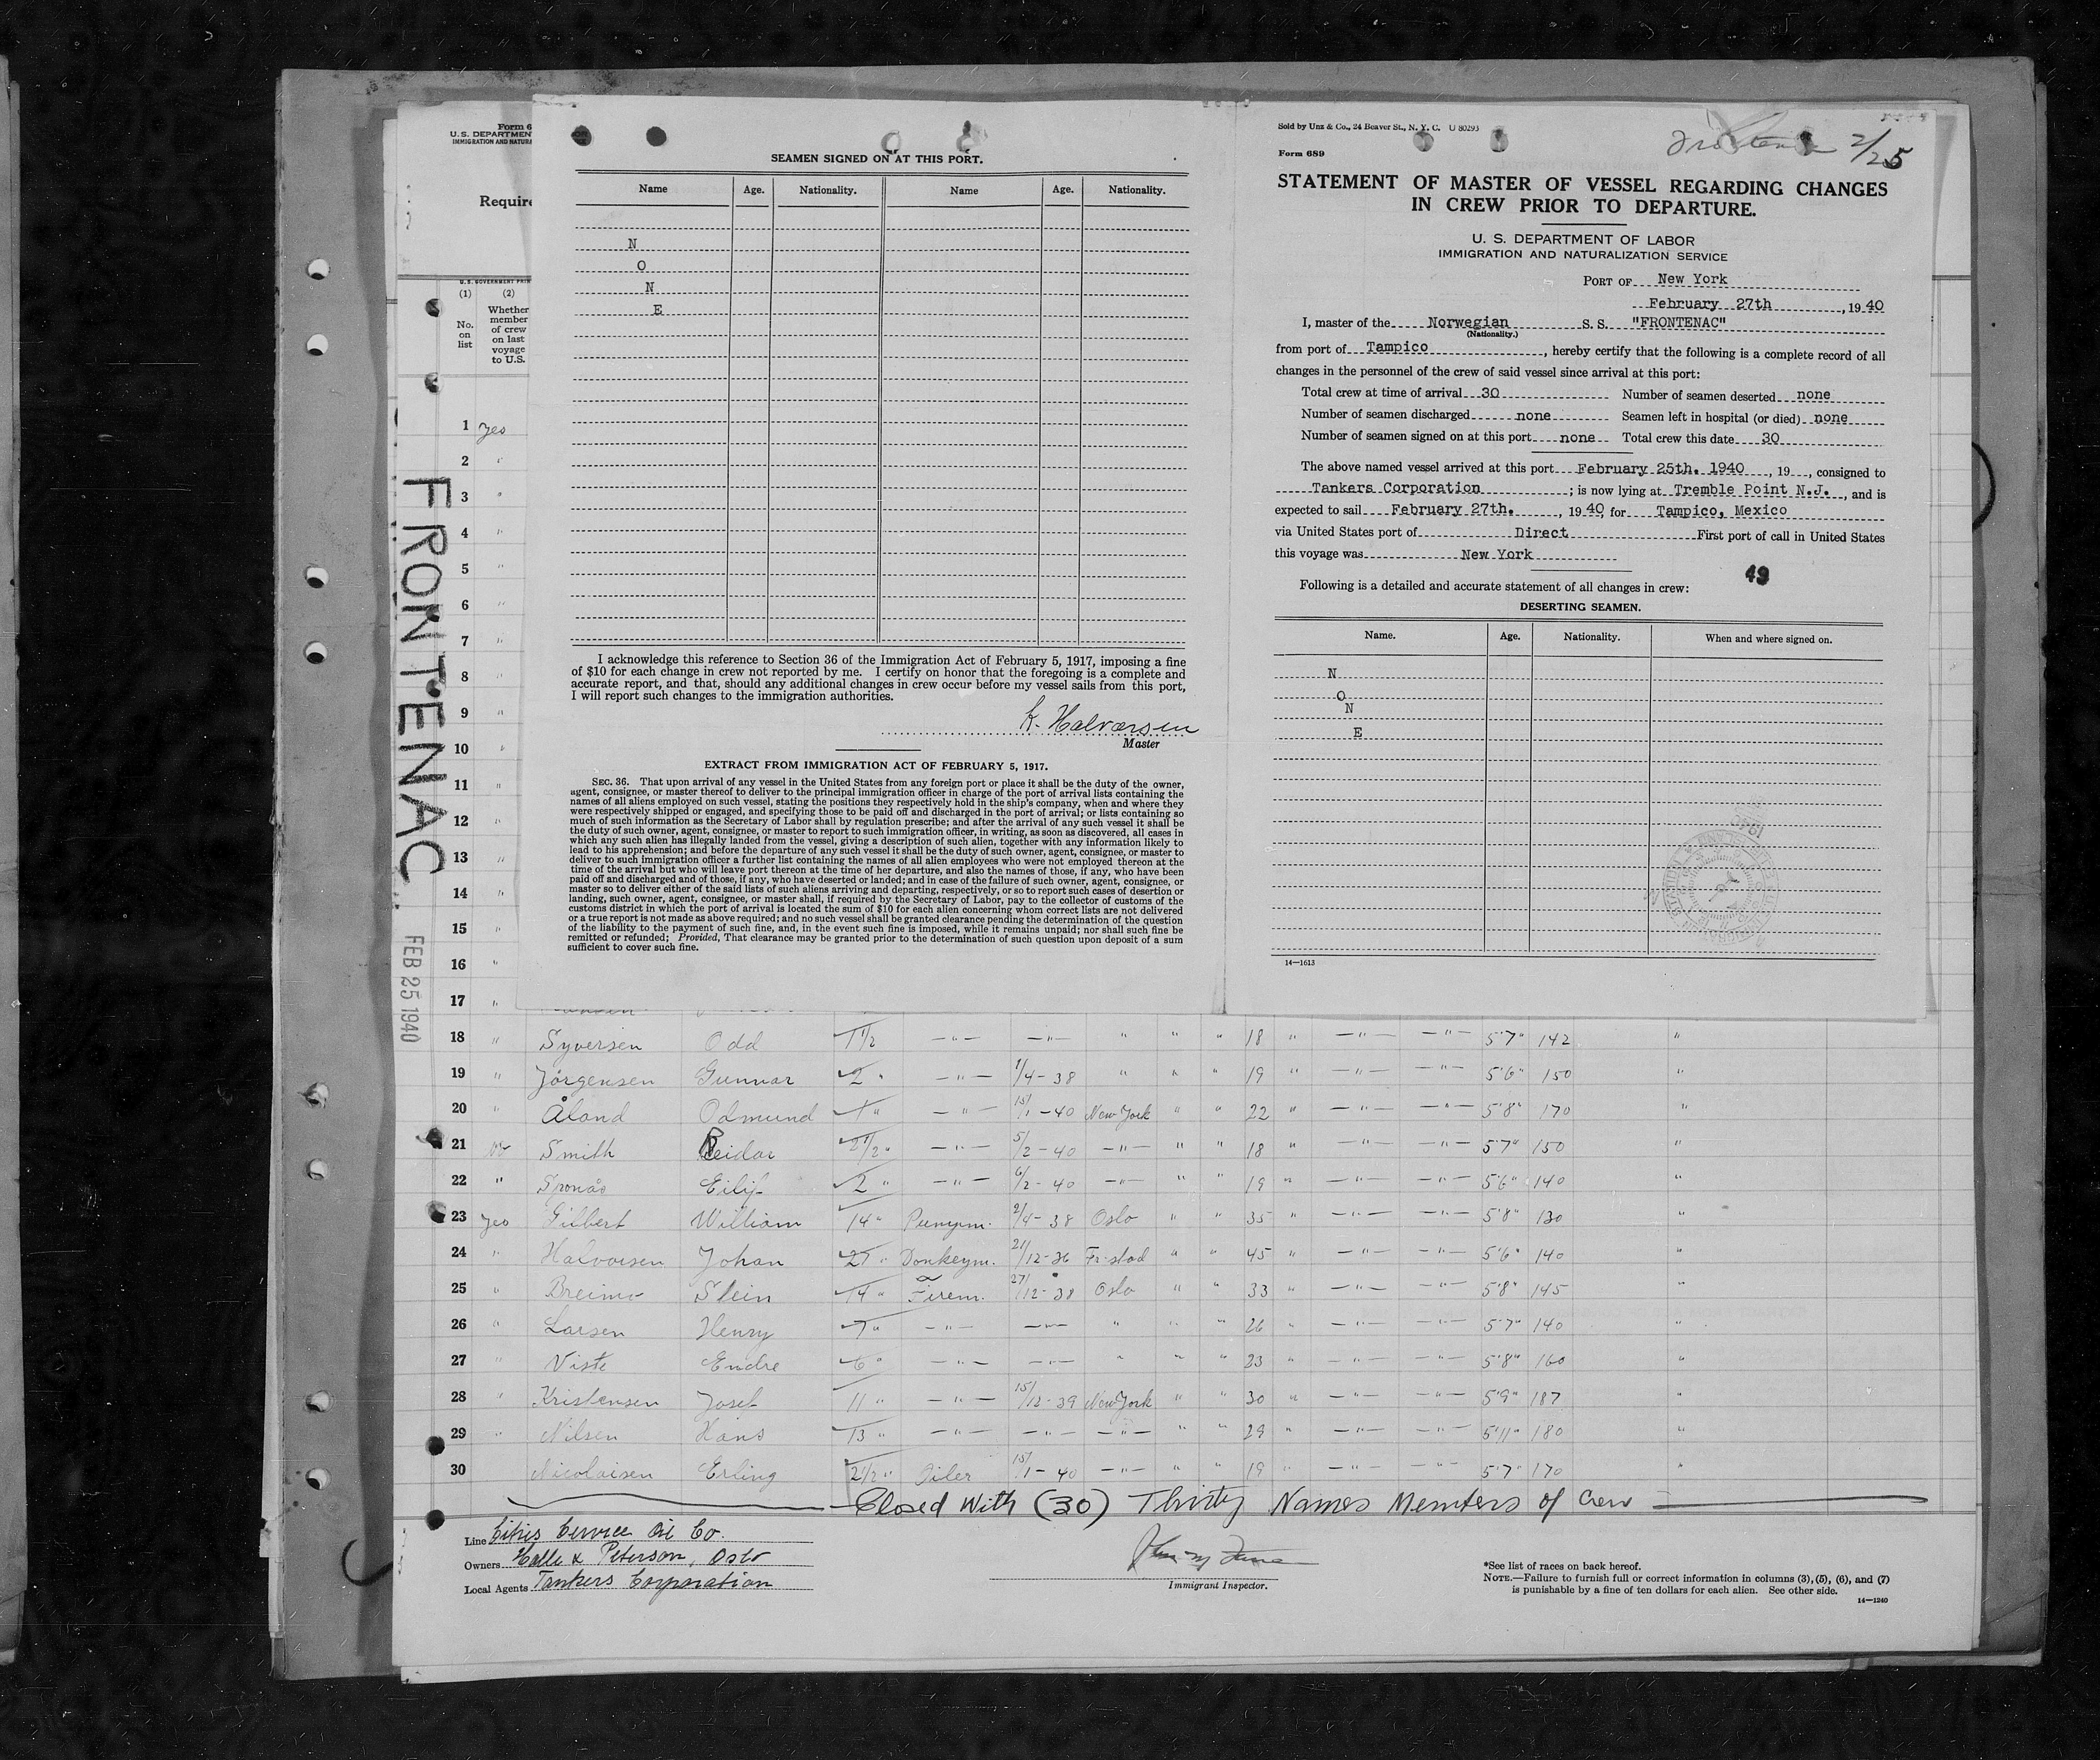 Form 6
U. S. DEPARTMENT
IMMIGRATION AND NATURA
Require
U. S. GOVERNMENT PRIN
(1) (2)
No. on list
Whether member of crew on last voyage to U.S.
FRONTENAC
FEB 25 1940
1 Yes
2 "
3 "
4 "
5 "
6 "
7 "
8 "
9 "
10 "
11 "
12 "
13 "
14 "
15 "
16 "
17 "
SEAMEN SIGNED ON AT THIS PORT.
Name Age. Nationality. Name Age. Nationality.
N
O
N
E
I acknowledge this reference to Section 36 of the Immigration Act of February 5, 1917, imposing a fine
of $10 for each change in crew not reported by me. I certify on honor that the foregoing is a complete and
accurate report, and that, should any additional changes in crew occur before my vessel sails from this port,
I will report such changes to the immigration authorities.
K. Halvorsen
Master
EXTRACT FROM IMMIGRATION ACT OF FEBRUARY 5, 1917.
SEC. 36. That upon arrival of any vessel in the United States from any foreign port or place it shall be the duty of the owner,
agent, consignee, or master thereof to deliver to the principal immigration officer in charge of the port of arrival lists containing the
names of all aliens employed on such vessel, stating the positions they respectively hold in the ship's company, when and where they
were respectively shipped or engaged, and specifying those to be paid off and discharged in the port of arrival; or lists containing so
much of such information as the Secretary of Labor shall by regulation prescribe; and after the arrival of any such vessel it shall be
the duty of such owner, agent, consignee, or master to report to such immigration officer, in writing, as soon as discovered, all cases in
which any such alien has illegally landed from the vessel, giving a description of such alien, together with any information likely to
lead to his apprehension; and before the departure of any such vessel it shall be the duty of such owner, agent, consignee, or master to
deliver to such immigration officer a further list containing the names of all alien employees who were not employed thereon at the
time of the arrival but who will leave port thereon at the time of her departure, and also the names of those, if any, who have been
paid off and discharged and of those, if any, who have deserted or landed; and in case of the failure of such owner, agent, consignee, or
master so to deliver either of the said lists of such aliens arriving and departing, respectively, or so to report such cases of desertion or
landing, such owner, agent, consignee, or master shall, if required by the Secretary of Labor, pay to the collector of customs of the
customs district in which the port of arrival is located the sum of $10 for each alien concerning whom correct lists are not delivered
or a true report is not made as above required; and no such vessel shall be granted clearance pending the determination of the question
of the liability to the payment of such fine, and, in the event such fine is imposed, while it remains unpaid; nor shall such fine be
remitted or refunded; Provided, That clearance may be granted prior to the determination of such question upon deposit of a sum
sufficient to cover such fine.
Sold by Unz & Co., 24 Beaver St., N. Y. C. U 80293
2/25
Form 689
STATEMENT OF MASTER OF VESSEL REGARDING CHANGES
IN CREW PRIOR TO DEPARTURE.
U. S. DEPARTMENT OF LABOR
IMMIGRATION AND NATURALIZATION SERVICE
PORT OF New York
February 27th, 1940
I, master of the Norwegian S. S. "FRONTENAC"
(Nationality.)
from port of Tampico, hereby certify that the following is a complete record of all
changes in the personnel of the crew of said vessel since arrival at this port:
Total crew at time of arrival 30 Number of seamen deserted none
Number of seamen discharged none Seamen left in hospital (or died) none
Number of seamen signed on at this port none Total crew this date 30
The above named vessel arrived at this port February 25th. 1940, 19, consigned to
Tankers Corporation; is now lying at Tremble Point N.J., and is
expected to sail February 27th., 1940, for Tampico, Mexico
via United States port of Direct First port of call in United States
this voyage was New York
49
Following is a detailed and accurate statement of all changes in crew:
DESERTING SEAMEN.
Name. Age. Nationality. When and where signed on.
N
O
N
E
1940
14—1613
18 " Syversen Odd 1 1/2 —"— —"— " " " 18 " —"— —"— 5'7" 142 "
19 " Jörgensen Gunnar 2 " —"— 1/4-38 " " " 19 " —"— —"— 5'6" 150 "
20 " Åland Odmund 1 " —"— 15/1-40 New York " " 22 " —"— —"— 5'8" 170 "
21 no Smith Reidar 2 1/2 " —"— 5/2-40 —"— " " 18 " —"— —"— 5'7" 150 "
22 " Sponås Eilif 2 " —"— 6/2-40 —"— " " 19 " —"— —"— 5'6" 140 "
23 Yes Gilbert William 14 " Pumpm. 2/4-38 Oslo " " 35 " —"— —"— 5'8" 130 "
24 " Halvorsen Johan 27 " Donkeym. 21/12-36 Fr.stad " " 45 " —"— —"— 5'6" 140 "
25 " Breimo Stein 14 " Firem. 27/12-38 Oslo " " 33 " —"— —"— 5'8" 145 "
26 " Larsen Henry 7 " —"— —"— " " " 26 " —"— —"— 5'7" 140 "
27 " Viste Endre 6 " —"— —"— " " " 23 " —"— —"— 5'8" 160 "
28 " Kristensen Josef 11 " —"— 15/12-39 New York " " 30 " —"— —"— 5'9" 187 "
29 " Nilsen Hans 13 " —"— —"— —"— " " 29 " —"— —"— 5'11" 180 "
30 Nicolaisen Erling 2 1/2 " Oiler 15/1-40 —"— " " 19 " —"— —"— 5'7" 170 "
Closed With (30) Thirty Names Members of Crew
Line Cities Service Oil Co.
Owners Halle & Peterson, Oslo
Local Agents Tankers Corporation
Immigrant Inspector.
*See list of races on back hereof.
NOTE.—Failure to furnish full or correct information in columns (3), (5), (6), and (7)
is punishable by a fine of ten dollars for each alien. See other side.
14—1240